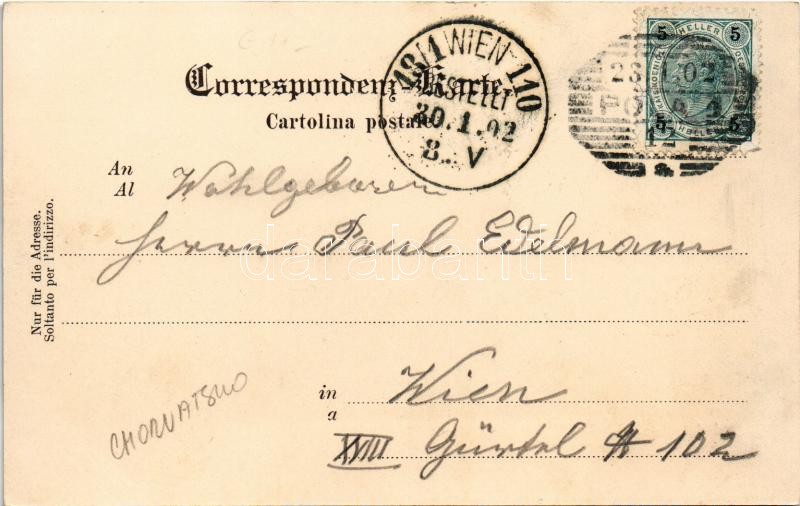 Correspondenz-Karte.
Cartolina postale.
18/1 WIEN 110
BESTELLT
30.1.02
8.. V
5 HELLER 5
5 HELLER 5
28 1 02
POLA 1
An
Al
Wohlgeboren
Herrn Paul Edelmann
Nur für die Adresse.
Soltanto per l'indirizzo.
darabanth
in
a
Wien
XVIII Gürtel # 102
CHORVATSKO